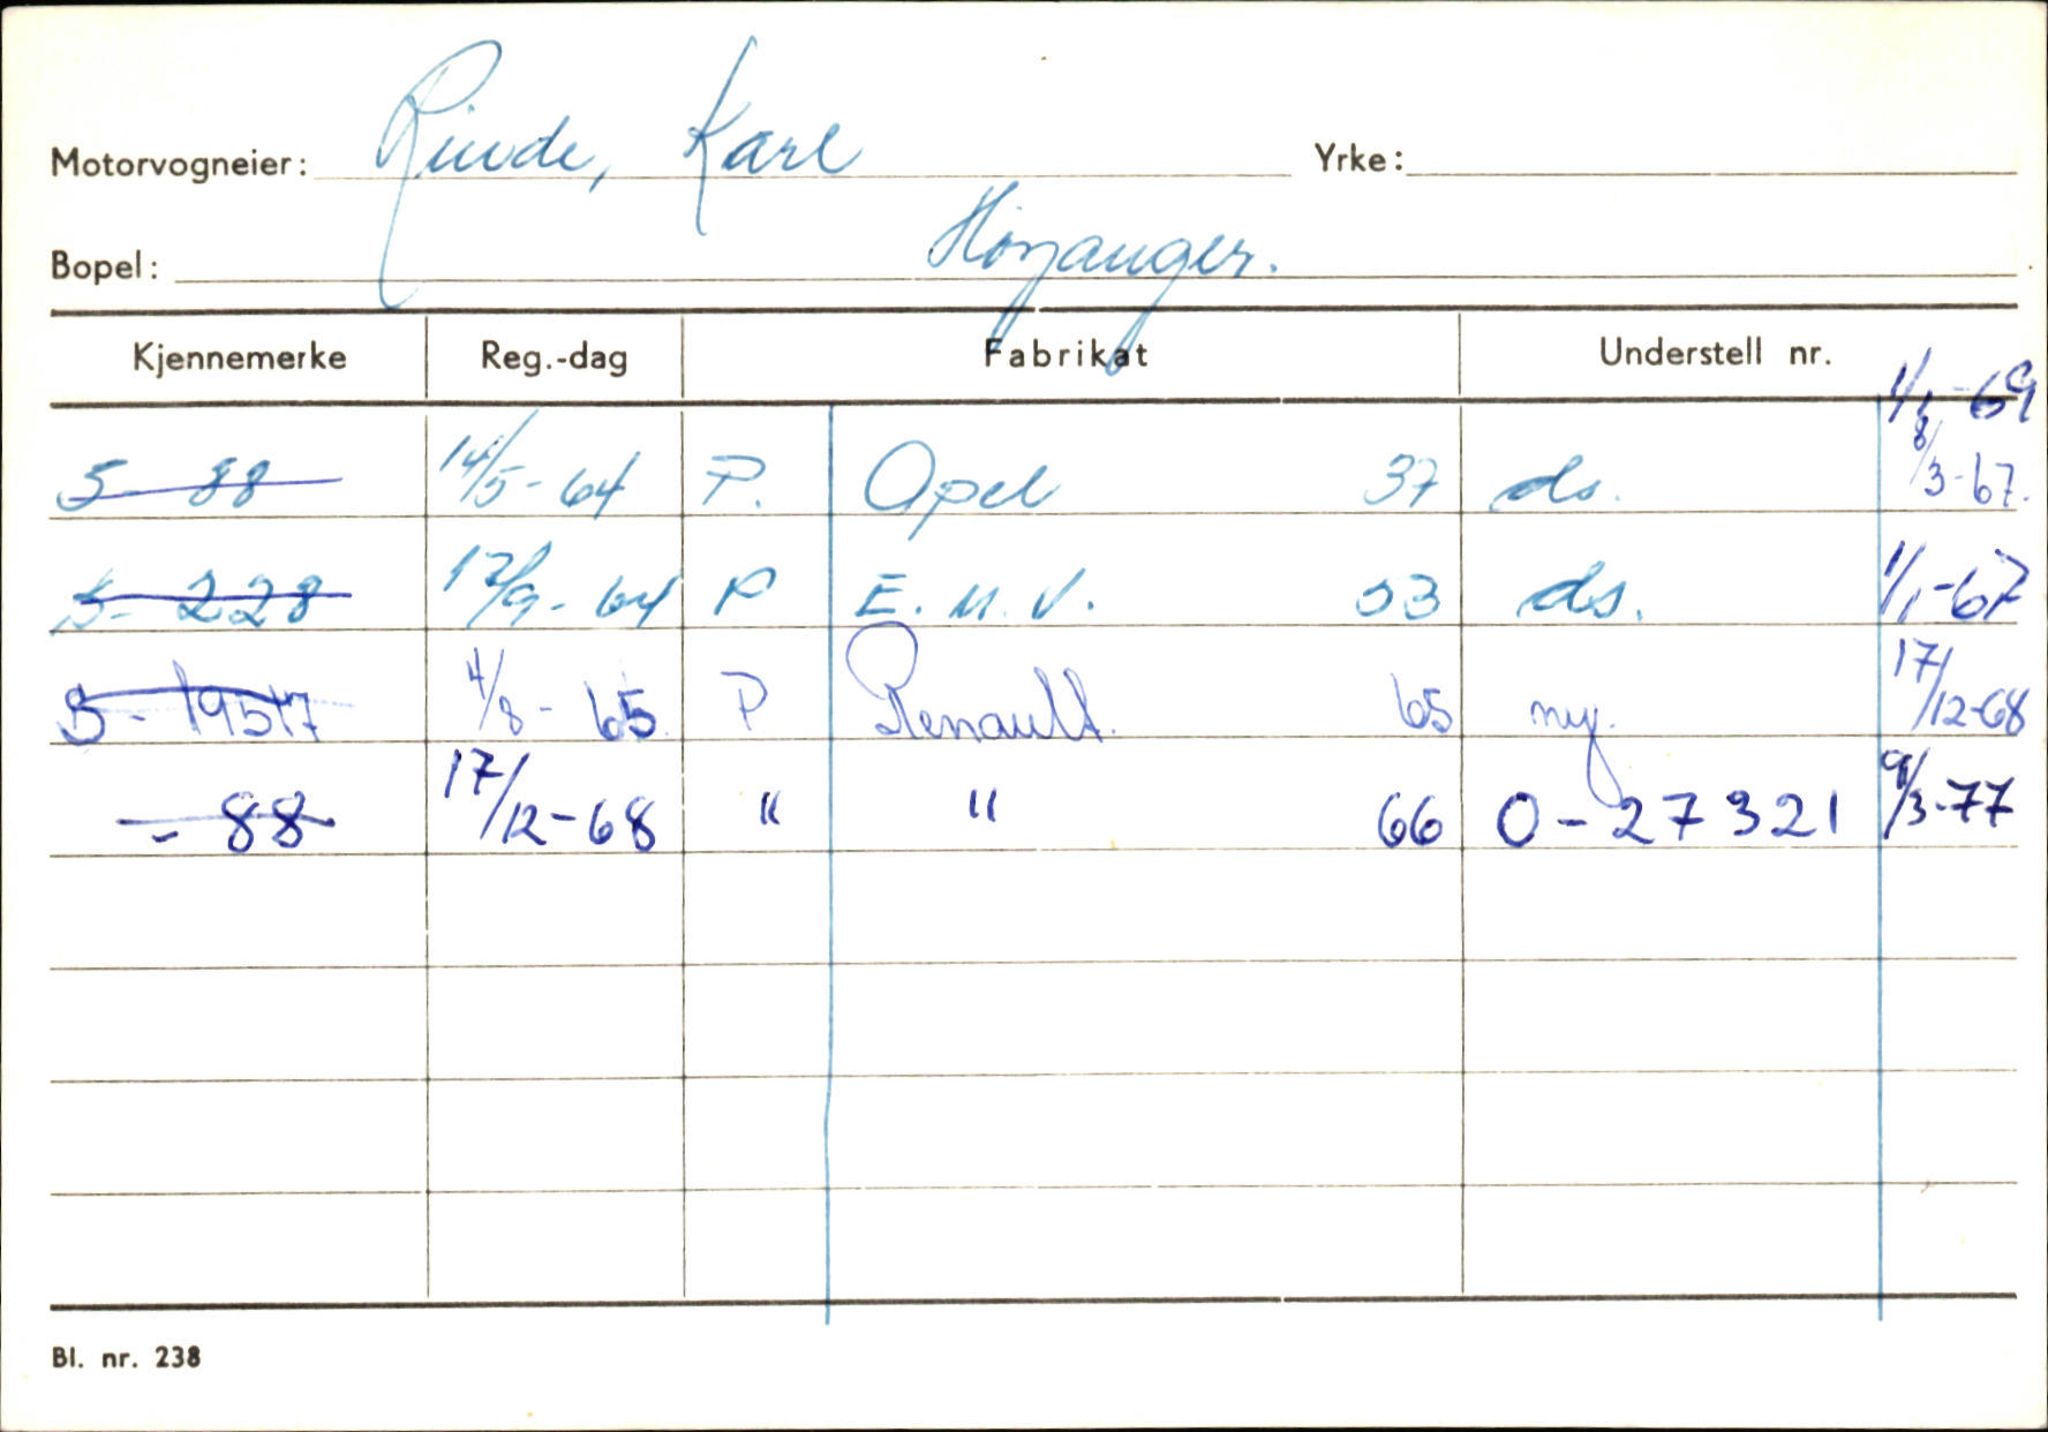 Motorvogneier: Rinde, Karl Yrke:
Bopel: Høyanger.
Kjennemerke Reg.-dag Fabrikat Understell nr.
1/1-69
S- 88 14/5-64 P. Opel 37 ds. 8/3-67.
S- 228 12/9-64 P E.M.V. 53 ds. 1/1-67
S- 19517 4/8-65. P Renault. 65 ny. 17/12-68
- 88 17/12-68 " " 66 0-27321 9/3-77
Bl. nr. 238